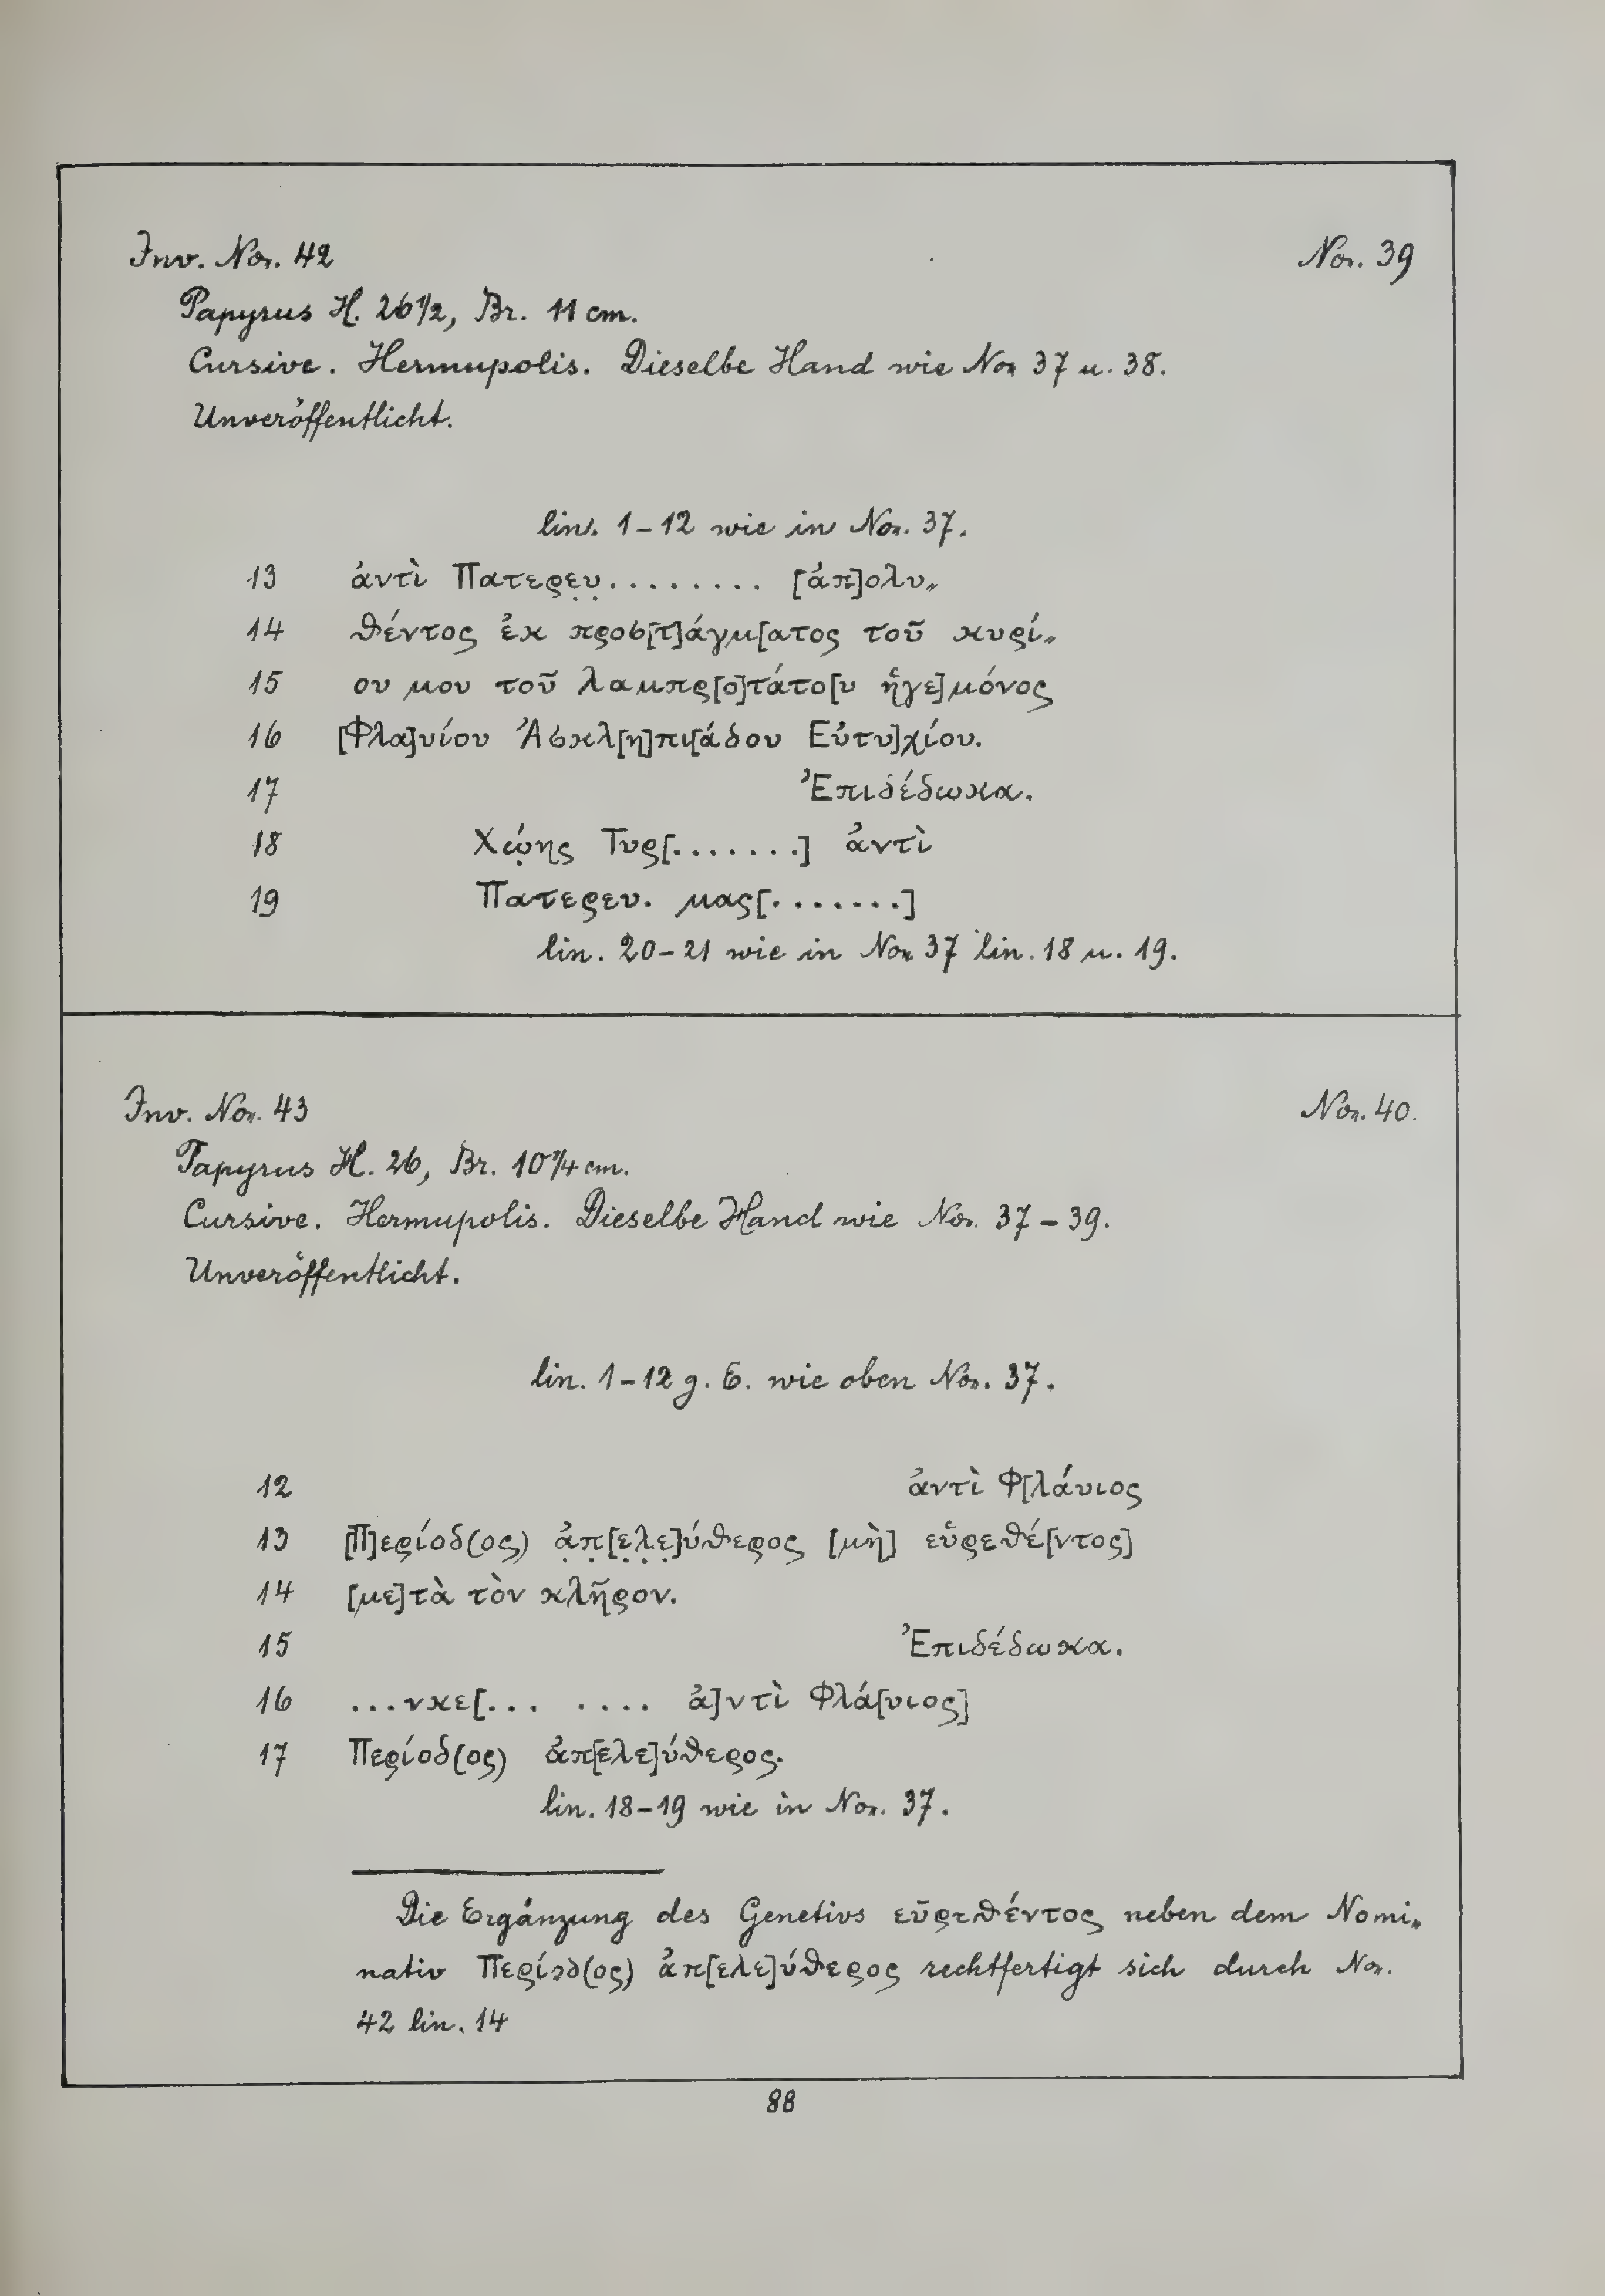 Inv. No. 42 No. 39
Papyrus H. 26 1/2, Br. 11 cm.
Cursive. Hermupolis. Dieselbe Hand wie No. 37 u. 38.
Unveröffentlicht.
lin. 1-12 wie in No. 37.
13 ἀντὶ Πατερε̣υ̣......... [ἀπ]ολυ„
14 θέντος ἐκ προσ[τ]άγμ[ατος τοῦ κυρί„
15 ου μου τοῦ λαμπρ[ο]τάτο[υ ἡγε]μόνος
16 [Φλα]υίου Ἀσκλ[η]πι[άδου Εὐτυ]χίου.
17 Ἐπιδέδωκα.
18 Χώ̣ης Τυρ[.......] ἀντὶ
19 Πατερευ. μας[.......]
lin. 20-21 wie in No. 37 lin. 18 u. 19.
Inv. No. 43 No. 40.
Papyrus H. 26, Br. 10 3/4 cm.
Cursive. Hermupolis. Dieselbe Hand wie No. 37-39.
Unveröffentlicht.
lin. 1-12 g. E. wie oben No. 37.
12 ἀντὶ Φ[λάυιος
13 [Π]ερίοδ(ος) ἀ̣π̣[ε̣λ̣ε̣]ύθερος [μὴ] εὑρεθέ[ντος]
14 [με]τὰ τὸν κλῆρον.
15 Ἐπιδέδωκα.
16 ...νκε[... .... ἀ]ντὶ Φλά[υιος]
17 Περίοδ(ος) ἀπ[ελε]ύθερος.
lin. 18-19 wie in No. 37.
Die Ergänzung des Genetivs εὑρεθέντος neben dem Nomi„
nativ Περίοδ(ος) ἀπ[ελε]ύθερος rechtfertigt sich durch No.
42 lin. 14
88